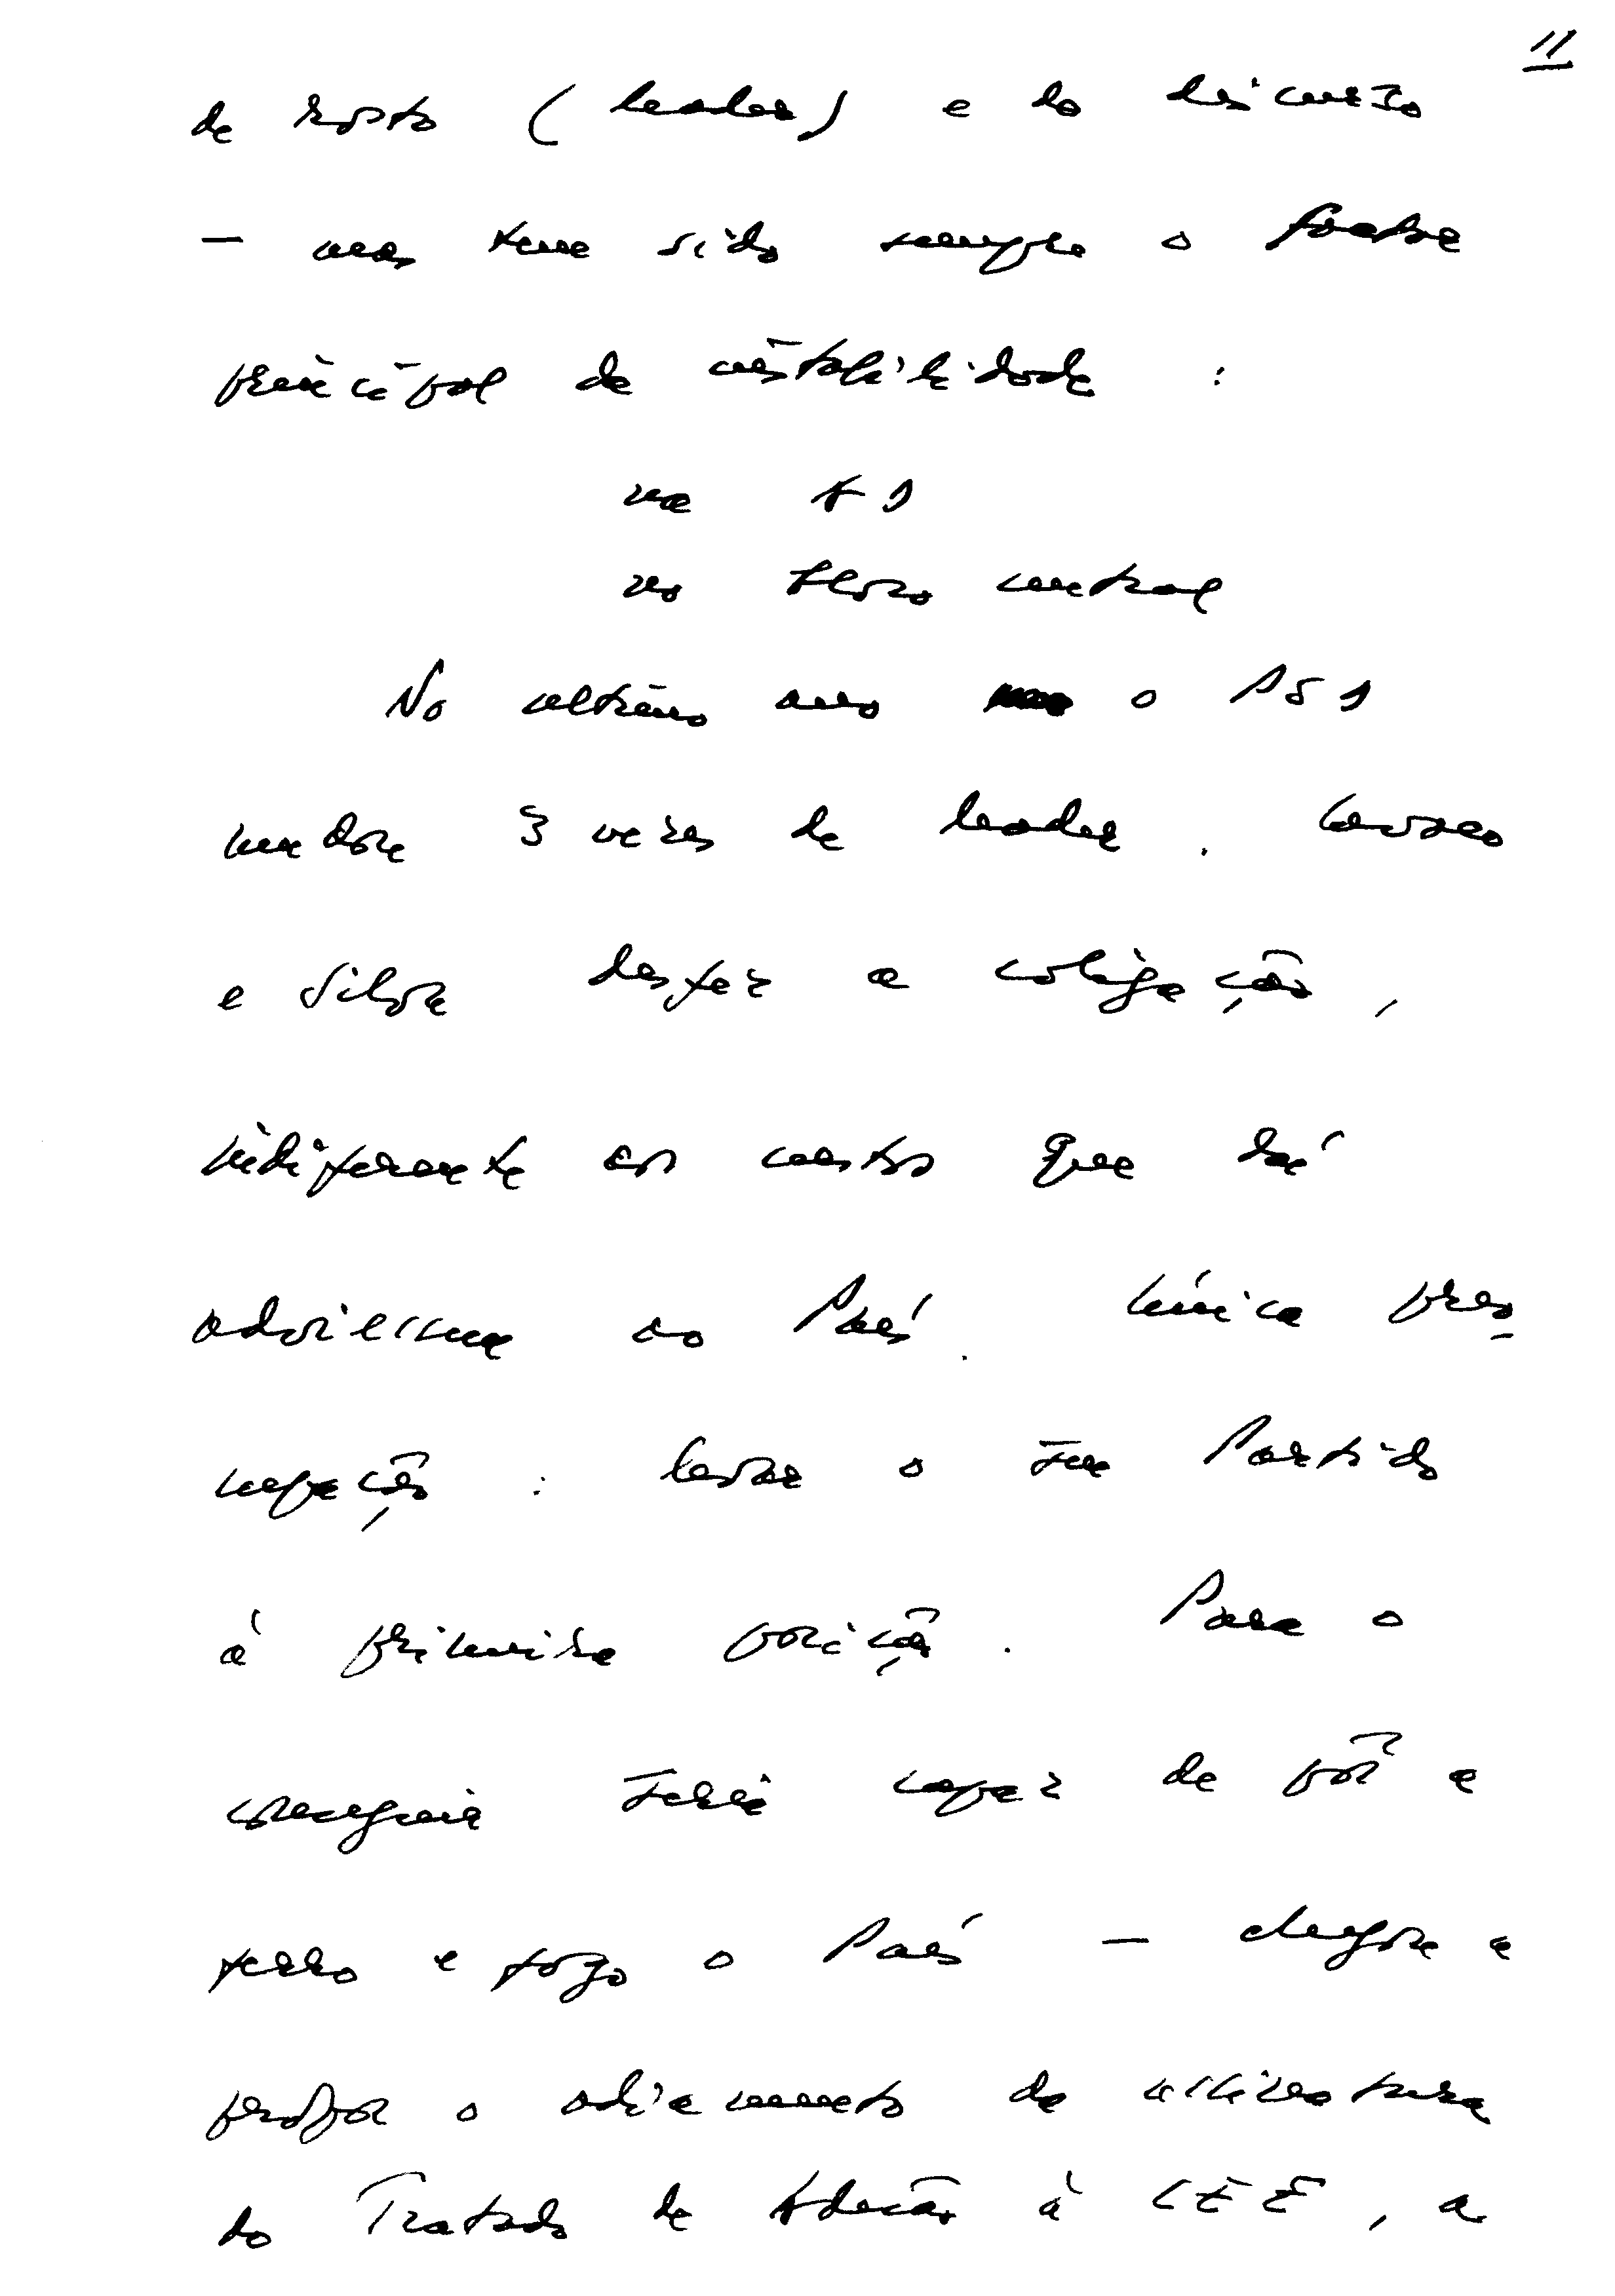 11
de rosto (leader) e do discurso
— mas tem sido sempre o factor
principal de instabilidade :
na AD
no Bloco central
No último ano o PSD
mudou 3 vezes de leader. Cavaco
e Silva desfez a coligação,
indiferente aos custos que daí
adviessem ao País. única preo
cupação : levar o seu Partido
à primeira posição. Para o
conseguir será capaz de pôr a
ferro e fogo o País — chegou a
propor o adiamento da assinatura
do Tratado de Adesão à CEE, a